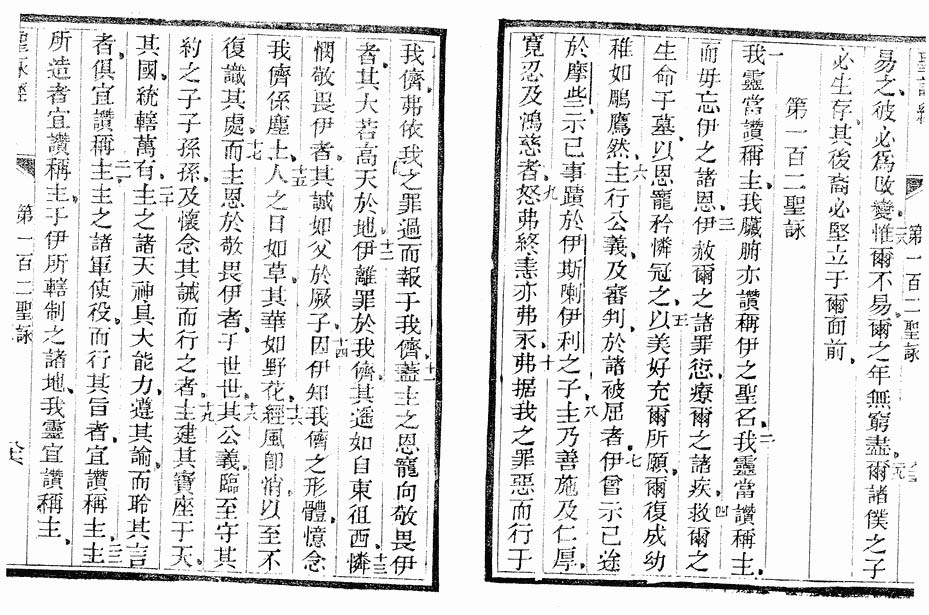 聖詠經 第一百二聖詠
易之彼必爲改變惟爾不易爾之年無窮盡爾諸僕之子
必生存其後裔必堅立于爾面前
第一百二聖詠
一我靈當讚稱主我臟腑亦讚稱伊之聖名二我靈當讚稱主
而毋忘伊之諸恩三伊赦爾之諸罪愆療爾之諸疾四救爾之
生命于墓以恩寵矜憐冠之五以美好充爾所願爾復成幼
稚如鵰鷹然六主行公義及審判於諸被屈者七伊曾示己途
於摩些示己事蹟於伊斯喇伊利之子八主乃善施及仁厚
寬忍及鴻慈者九怒弗終恚亦弗永十弗据我之罪惡而行于
我儕弗依我之罪過而報于我儕十一蓋主之恩寵向敬畏伊
者其大若高天於地十二伊離罪於我儕其遥如自東徂西十三憐
憫敬畏伊者其誠如父於厥子十四因伊知我儕之形體憶念
我儕係塵土十五人之日如草其華如野花十六經風卽悄以至不
復識其處十七而主恩於敬畏伊者于世世十八其公義臨至守其
約之子子孫孫及懷念其誡而行之者十九主建其寶座于天
其國統轄萬有二十主之諸天神具大能力遵其諭而聆其言
者俱宜讚稱主二一主之諸軍使役而行其旨者宜讚稱主二二主
所造者宜讚稱主于伊所轄制之諸地我靈宜讚稱主
聖詠經 第一百二聖詠